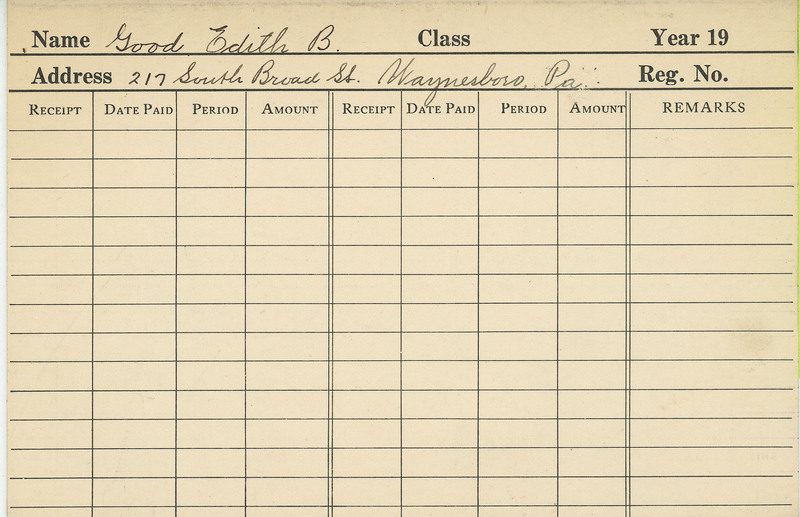 Name Good Edith B. Class Year 19
Address 217 South Broad St. Waynesboro, Pa. Reg. No.
RECEIPT DATE PAID PERIOD AMOUNT RECEIPT DATE PAID PERIOD AMOUNT REMARKS